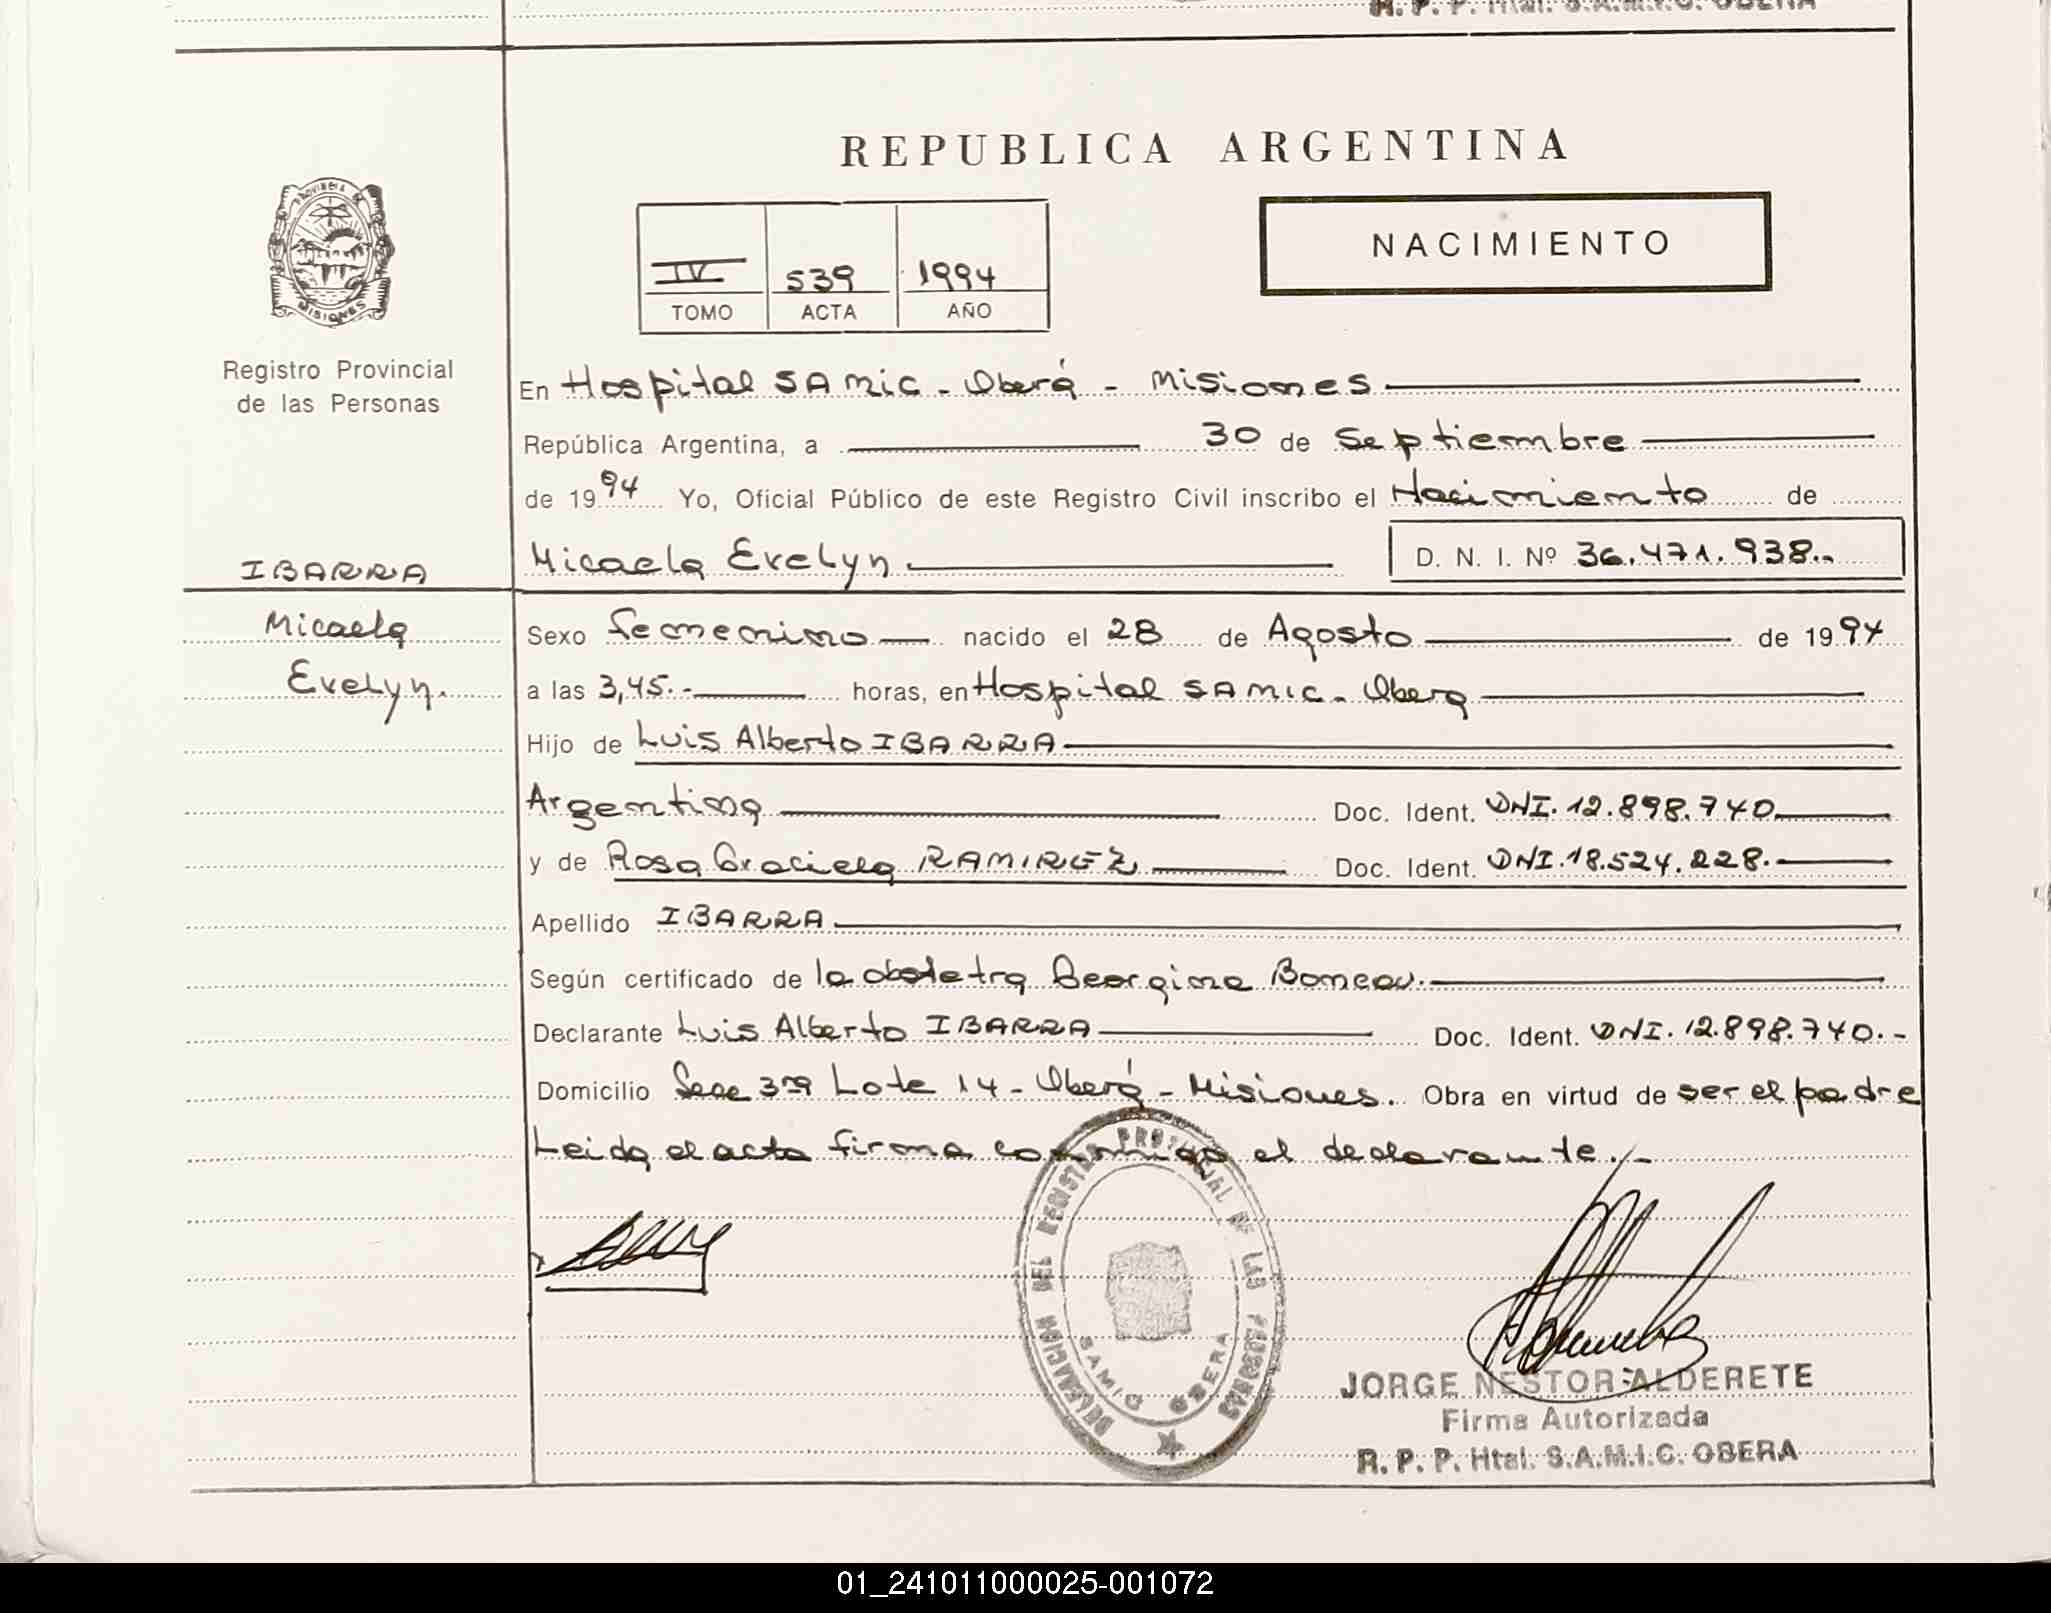 R. P. P. Htal. S.A.M.I.C. OBERA
REPUBLICA ARGENTINA
NACIMIENTO
IV 539 1994
TOMO ACTA AÑO
PROVINCIA DE
MISIONES
Registro Provincial
de las Personas
En Hospital SAMIC - Oberá - Misiones
República Argentina, a 30 de Septiembre
de 1994 Yo, Oficial Público de este Registro Civil inscribo el Nacimiento de
IBARRA
Micaela Evelyn D. N. I. Nº 36.471.938.-
Micaela
Evelyn.
Sexo femenino nacido el 28 de Agosto de 1994
a las 3,45.- horas, en Hospital SAMIC - Obera
Hijo de Luis Alberto IBARRA
Argentina Doc. Ident. DNI. 12.898.740.
y de Rosa Graciela RAMIREZ Doc. Ident. DNI. 18.524.228.
Apellido IBARRA
Según certificado de la obstetra Georgina Boneau.
Declarante Luis Alberto IBARRA Doc. Ident. DNI. 12.898.740.-
Domicilio Secc 3ra Lote 14 - Oberá - Misiones. Obra en virtud de ser el padre
Leida el acta firma conmigo el declarante.-
DELEGACION DEL REGISTRO PROVINCIAL DE LAS PERSONAS
SAMIC OBERA
JORGE NESTOR ALDERETE
Firma Autorizada
R. P. P. Htal. S.A.M.I.C. OBERA
01_241011000025-001072